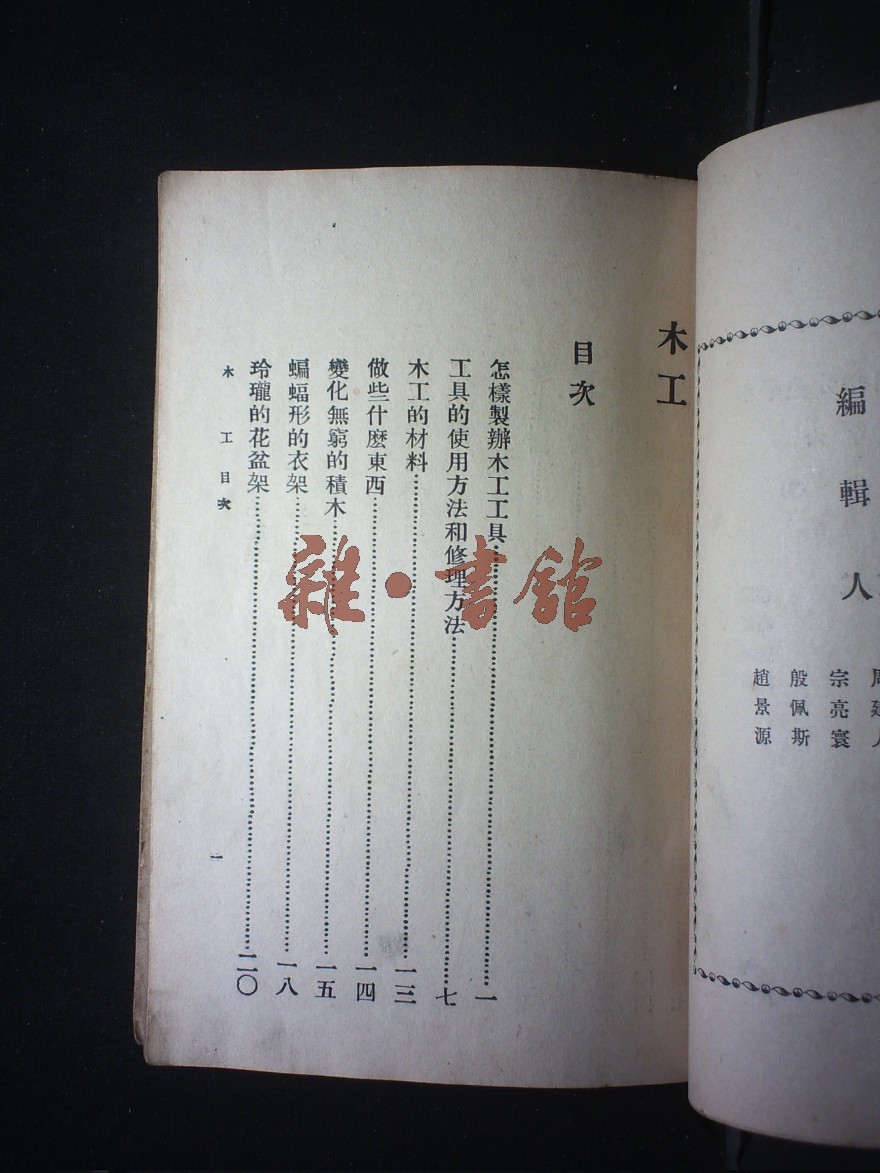 編輯人
宗亮寰
殷佩斯
趙景源
木工
目次
怎樣製辦木工工具⋯⋯一
工具的使用方法和修理方法⋯⋯七
木工的材料⋯⋯一三
做些什麽東西⋯⋯一四
變化無窮的積木⋯⋯一五
蝙蝠形的衣架⋯⋯一八
玲瓏的花盆架⋯⋯二〇
木工目次
一
雜·書館